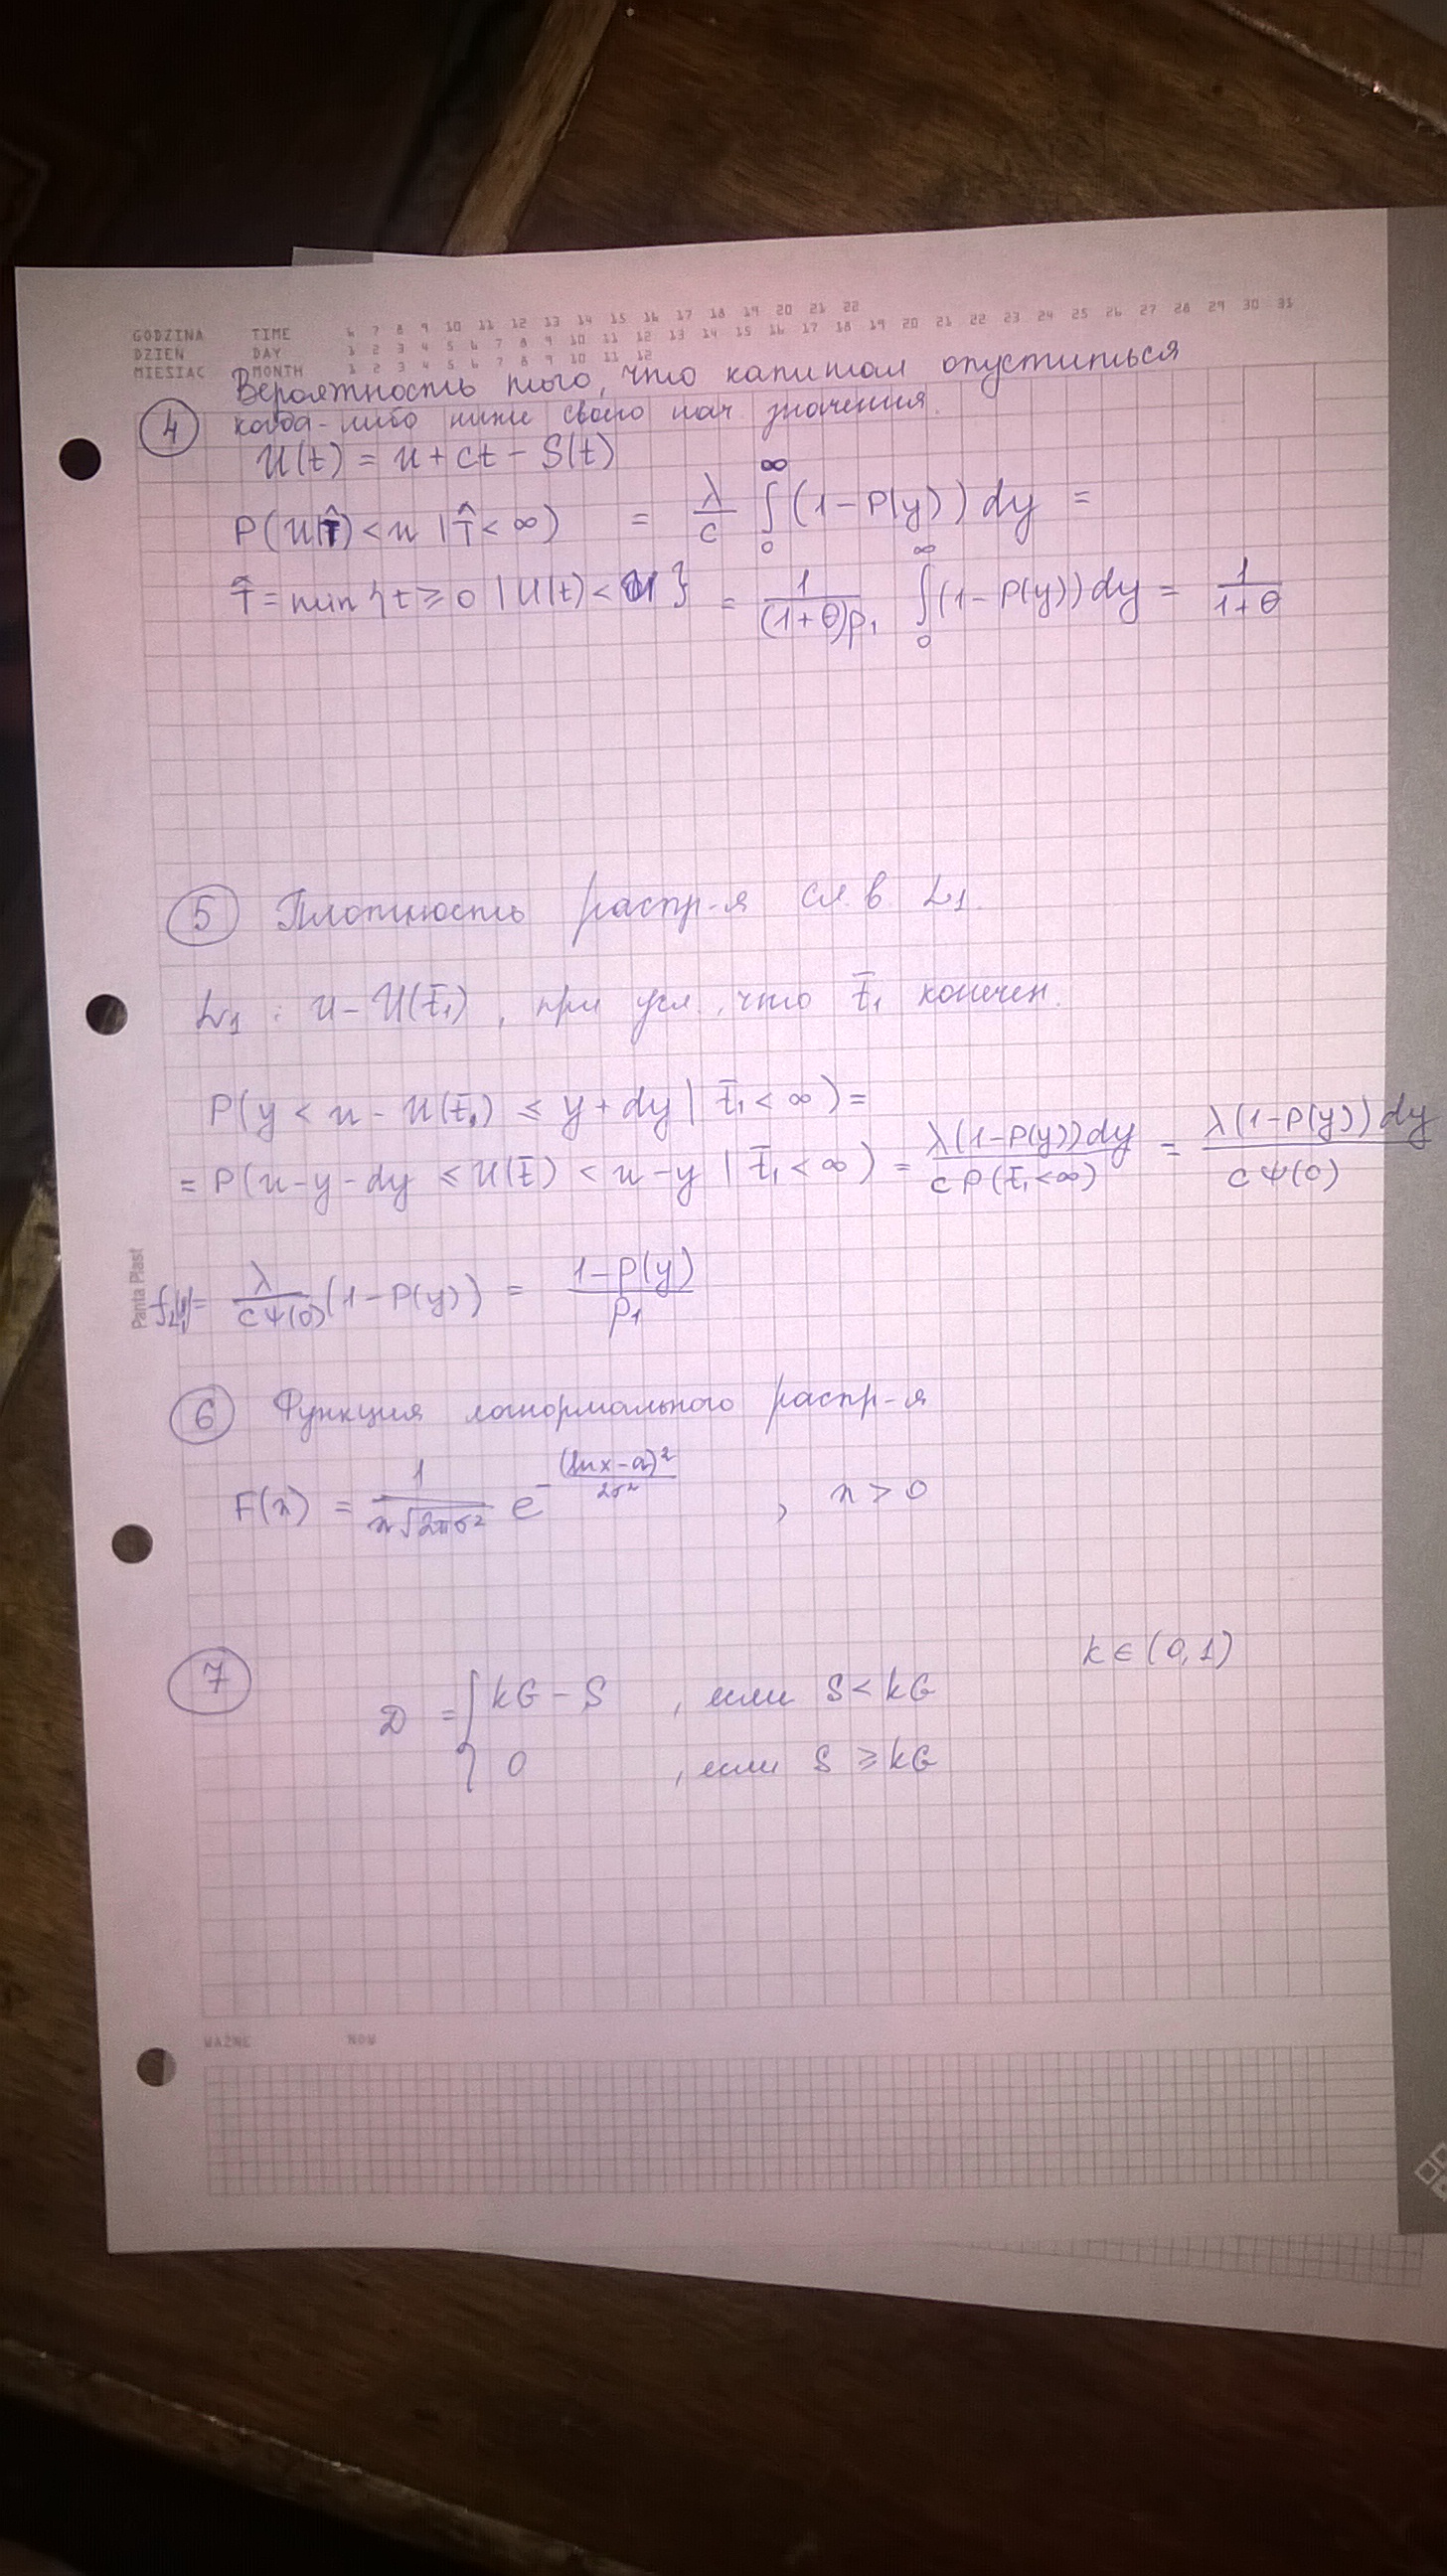 GODZINA TIME 6 7 8 9 10 11 12 13 14 15 16 17 18 19 20 21 22
DZIEŃ DAY 1 2 3 4 5 6 7 8 9 10 11 12 13 14 15 16 17 18 19 20 21 22 23 24 25 26 27 28 29 30 31
MIESIĄC MONTH 1 2 3 4 5 6 7 8 9 10 11 12
Вероятность того, что капитал опуститься
④ когда-либо ниже своего нач значения.
U(t) = u + ct - S(t)
P(U(T̂) < u | T̂ < ∞) = λ/c ∫₀^∞ (1-P(y)) dy =
T̂ = min {t ≥ 0 | U(t) < u} = 1/((1+θ)p₁) ∫₀^∞ (1-P(y)) dy = 1/(1+θ)
⑤ Плотность распр-я сл.в L₁.
L₁ : u - U(t̄₁), при усл, что t̄₁ конечен.
P(y < u - U(t̄₁) ≤ y + dy | t̄₁ < ∞) =
= P(u-y-dy ≤ U(t̄) < u-y | t̄₁ < ∞) = λ(1-P(y))dy / (c P(t̄₁<∞)) = λ(1-P(y))dy / (c ψ(0))
f_L₁(y) = λ/(cψ(0)) (1-P(y)) = (1-P(y))/p₁
Panta Plast
⑥ Функция логнормального распр-я
F(x) = 1/(x√(2πσ²)) e^(-(ln x-a)²/(2σ²)) , x > 0
⑦ k ∈ (0,1)
D = { kG - S , если S < kG
0 , если S ≥ kG
WAŻNE NOW